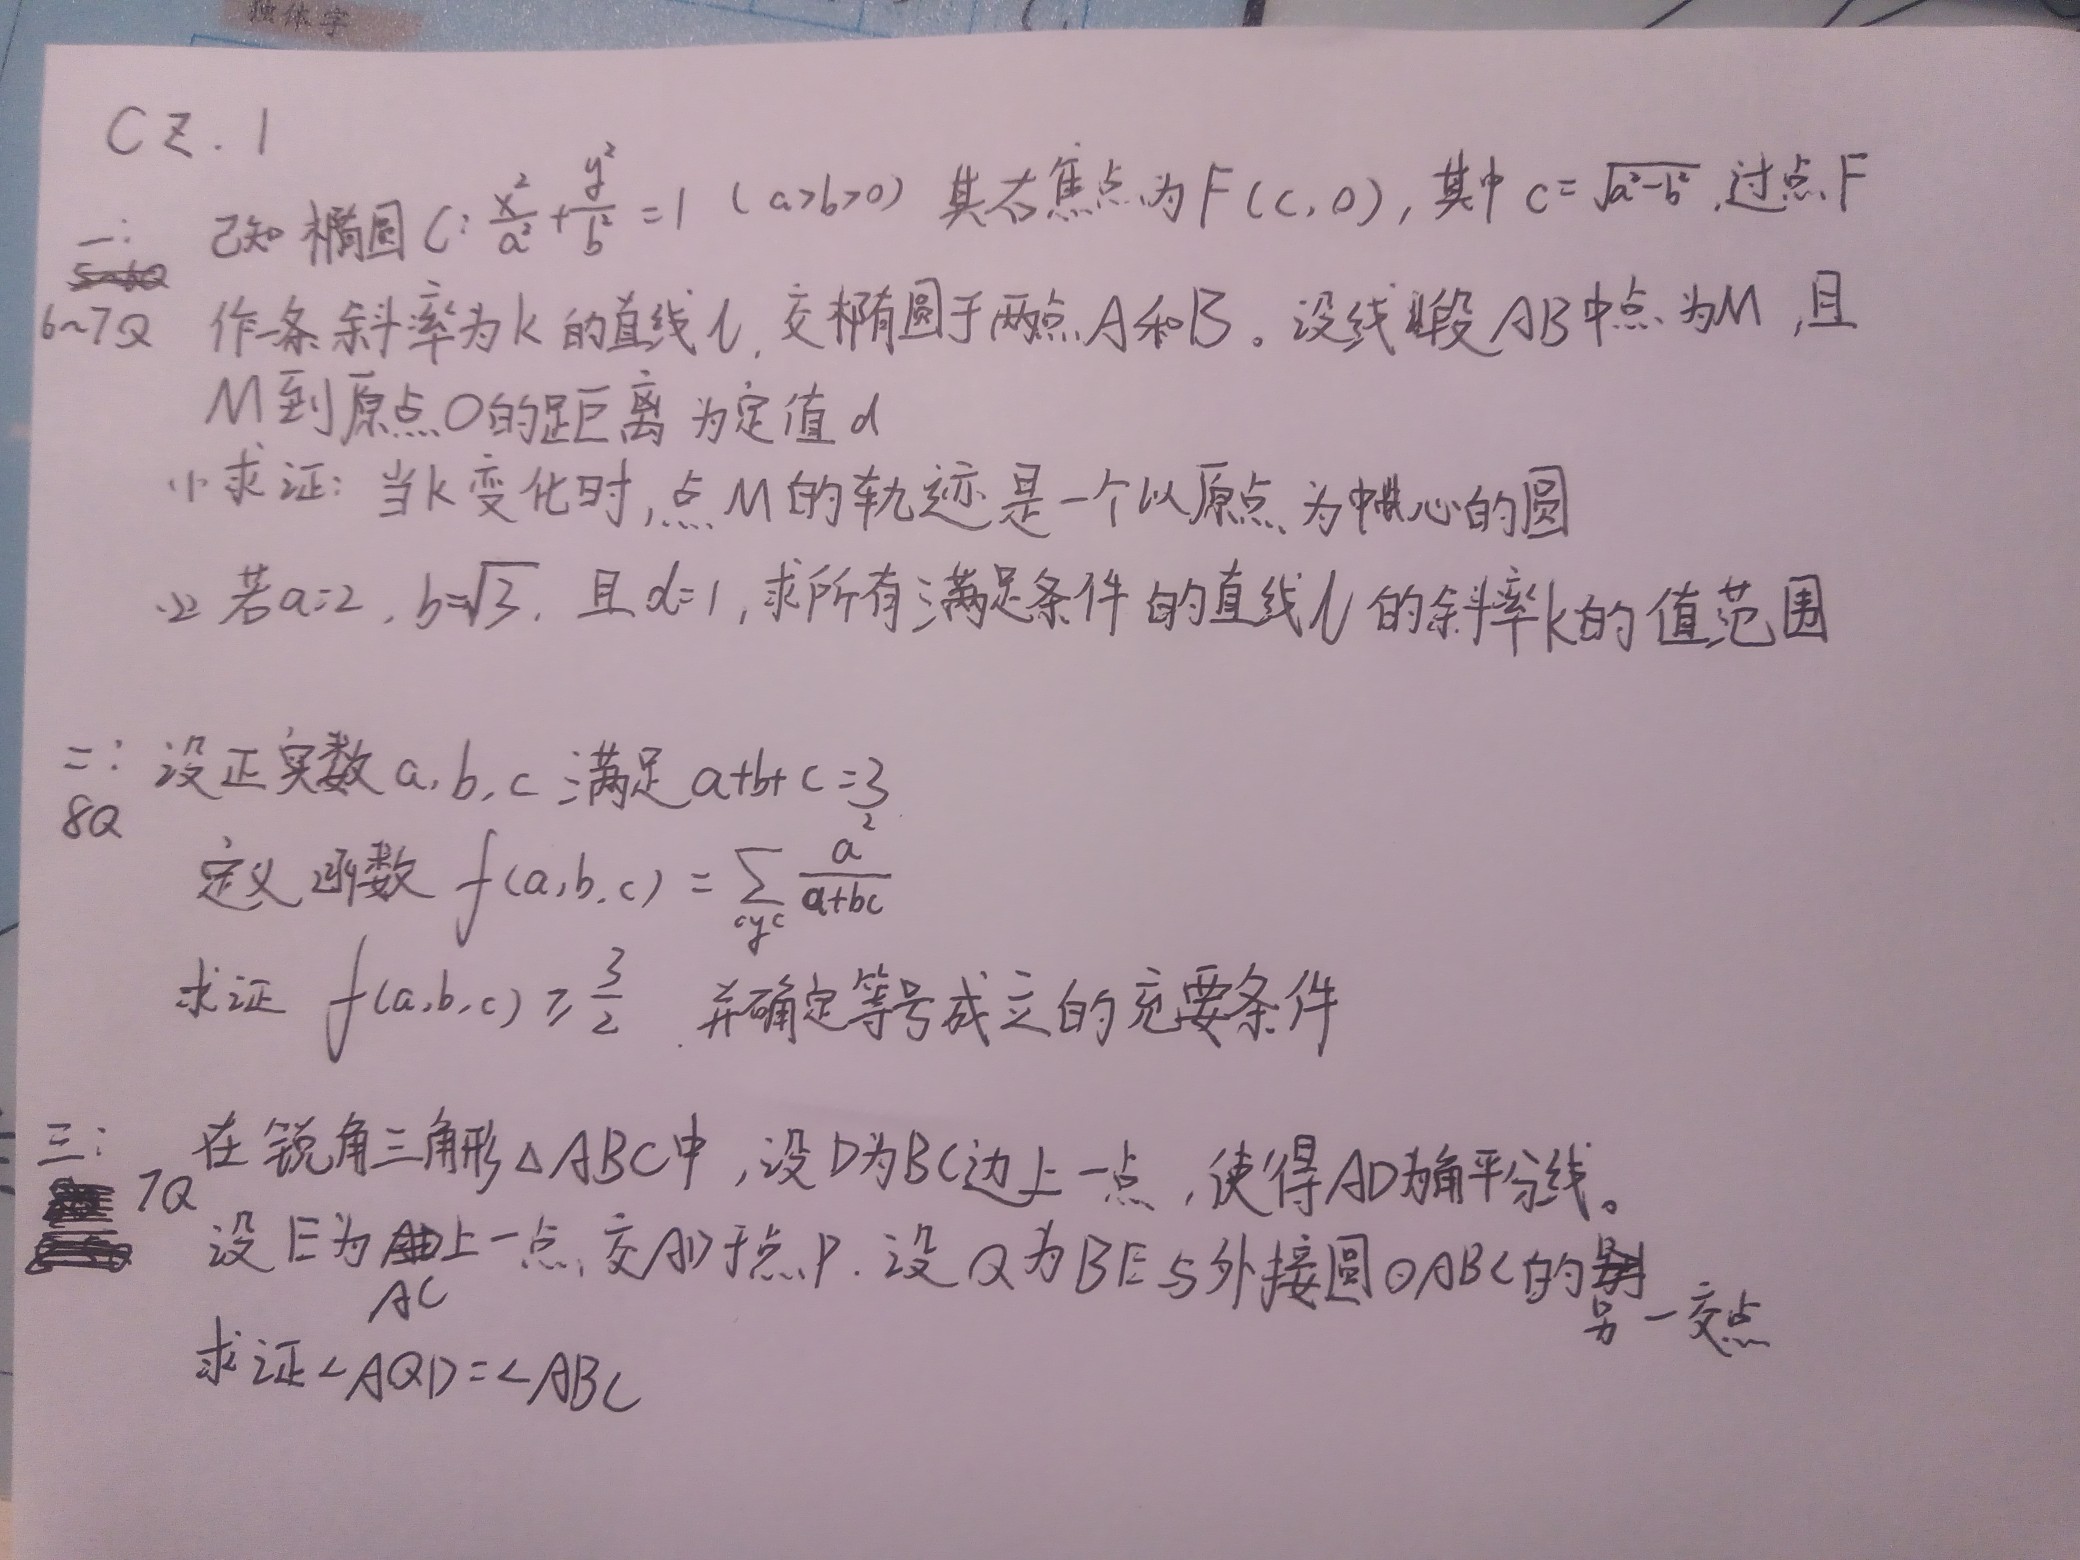 独体字
CZ.1
一: 已知椭圆C: x²/a² + y²/b² = 1 (a>b>0) 其右焦点为F(c,0), 其中c=√(a²-b²), 过点F
6~7Q 作一条斜率为k的直线l, 交椭圆于两点A和B。设线段AB中点为M, 且
M到原点O的距离为定值d
(1) 求证: 当k变化时, 点M的轨迹是一个以原点为中心的圆
(2) 若a=2, b=√3, 且d=1, 求所有满足条件的直线l的斜率k的值范围
二: 设正实数a,b,c满足a+b+c=3
8Q
定义函数 f(a,b,c) = ∑cyc a²/(a+bc)
求证 f(a,b,c) ≥ 3/2 并确定等号成立的充要条件
三: 在锐角三角形△ABC中, 设D为BC边上一点, 使得AD为角平分线。
7Q 设E为AC上一点, 交AD于点P. 设Q为BE与外接圆⊙ABC的另一交点
求证∠AQD=∠ABC